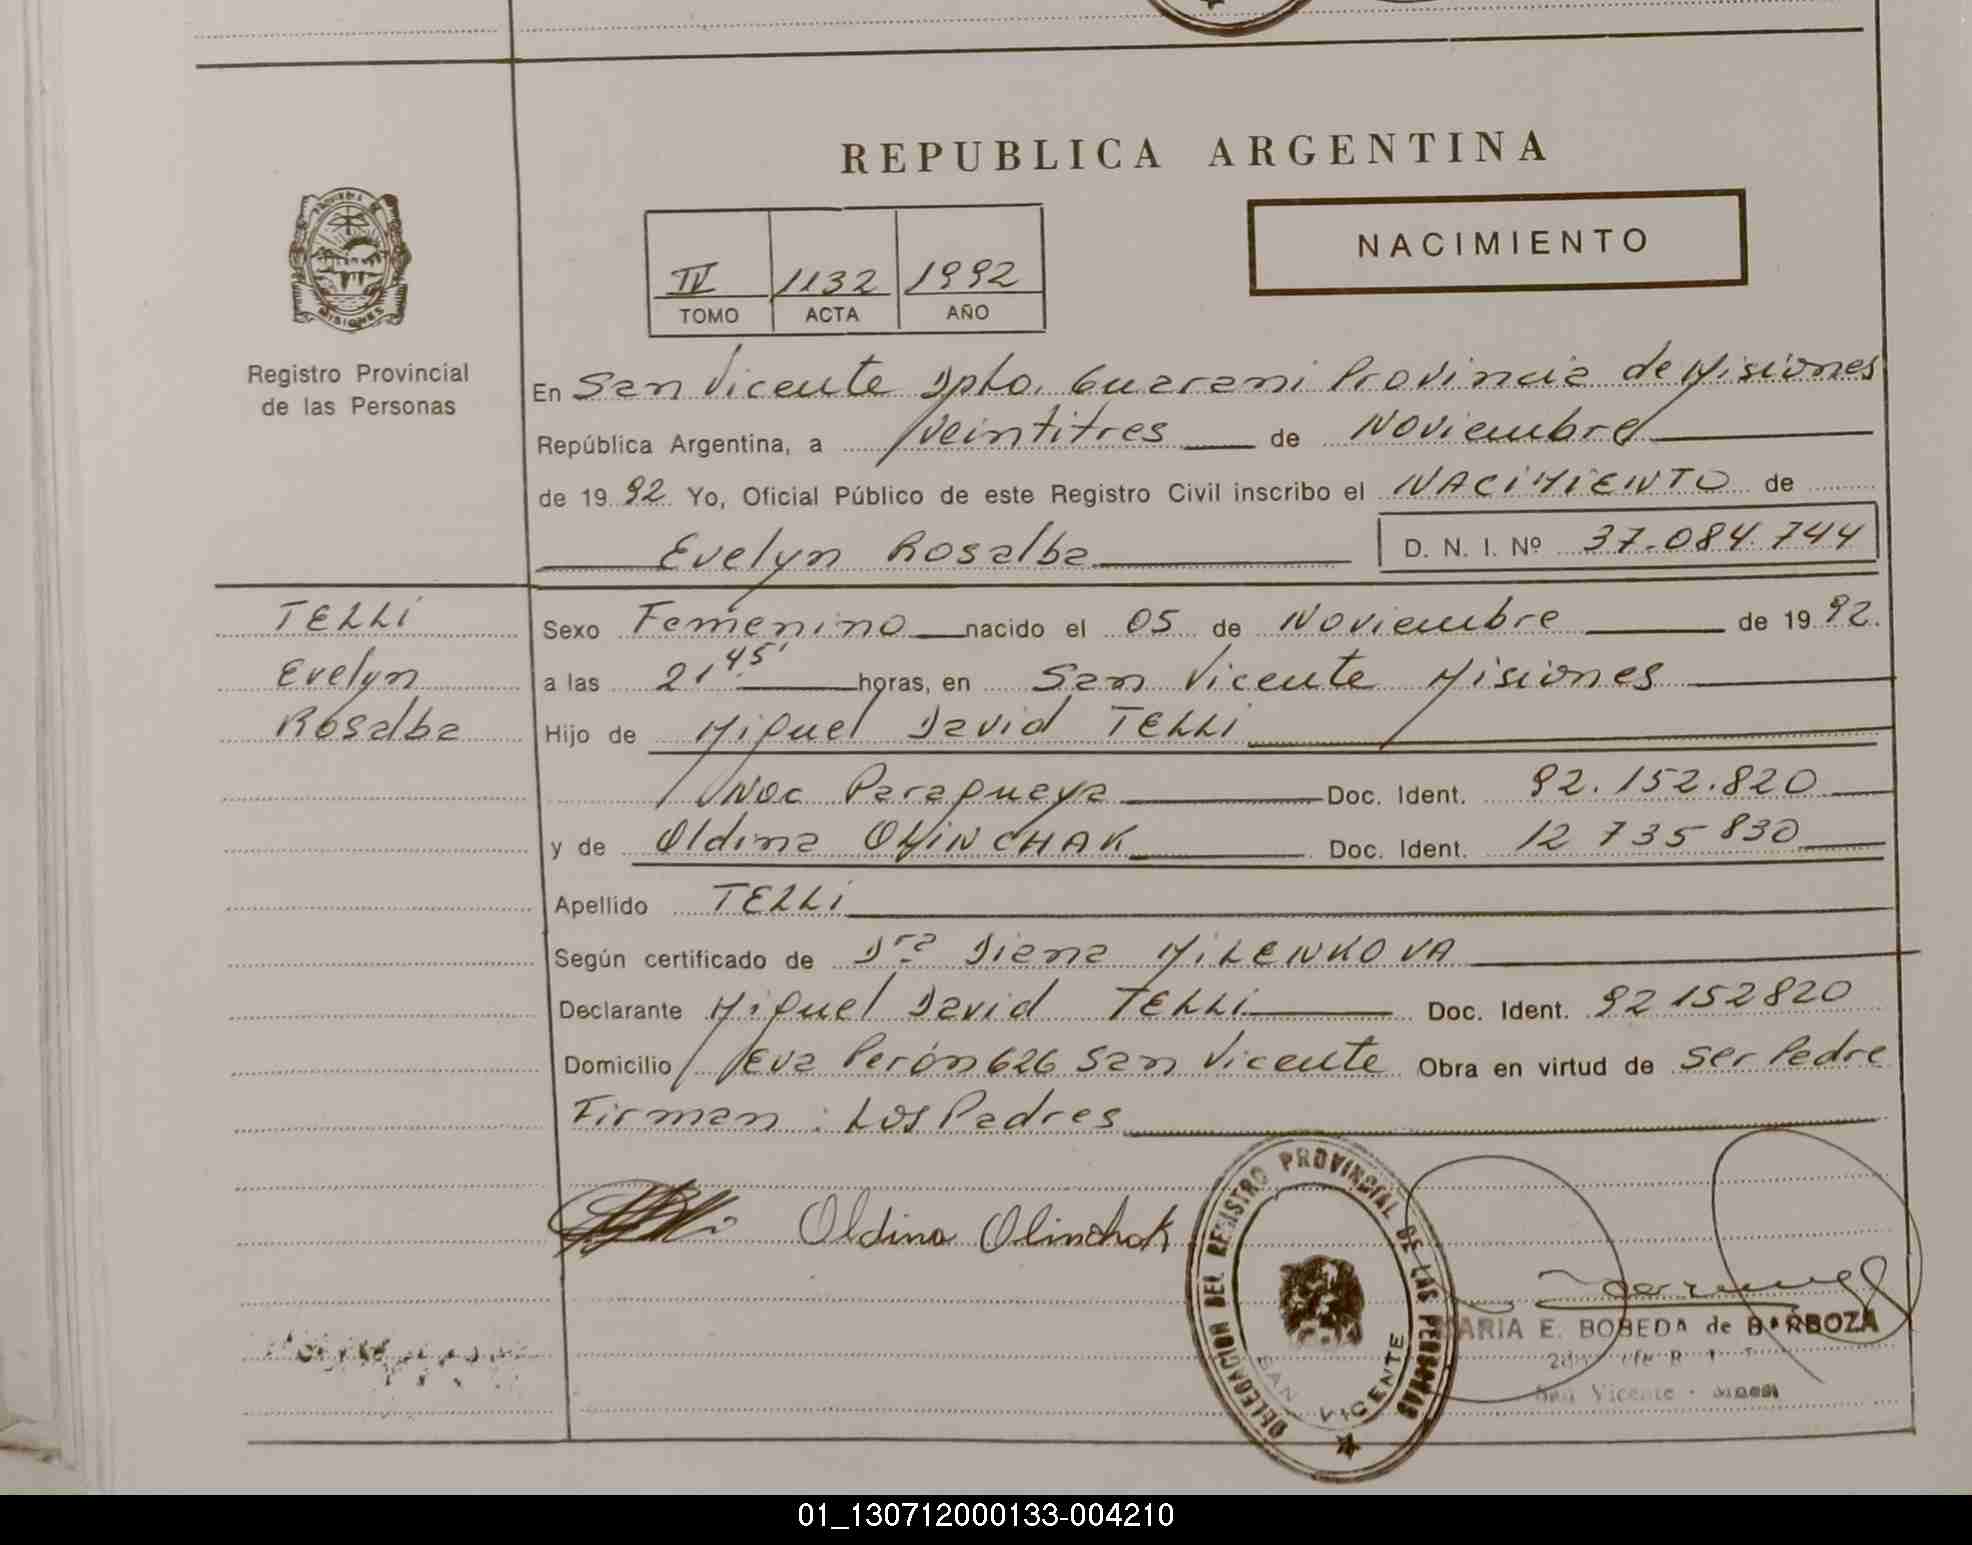 REPUBLICA ARGENTINA
NACIMIENTO
IV 1132 1992
TOMO ACTA AÑO
MISIONES
Registro Provincial
de las Personas
En San Vicente Dpto. Guarani Provincia de Misiones
República Argentina, a veintitres de Noviembre
de 1992 Yo, Oficial Público de este Registro Civil inscribo el NACIMIENTO de
Evelyn Rosalba D. N. I. Nº 37.084.744
TELLI
Evelyn
Rosalba
Sexo Femenino nacido el 05 de Noviembre de 1992.
a las 21 45' horas, en San Vicente Misiones
Hijo de Miguel David TELLI
Nac Paraguaya Doc. Ident. 92.152.820
y de Oldina OLINCHAK Doc. Ident. 12 735 830
Apellido TELLI
Según certificado de Dra Diana MILENKOVA
Declarante Miguel David TELLI Doc. Ident. 92 152820
Domicilio Eva Perón 626 San Vicente Obra en virtud de ser Padre
Firman : Los Padres
Oldina Olinchak
DELEGACION DEL REGISTRO PROVINCIAL DE LAS PERSONAS
SAN VICENTE
MARIA E. BOBEDA de BARBOZA
San Vicente
01_130712000133-004210